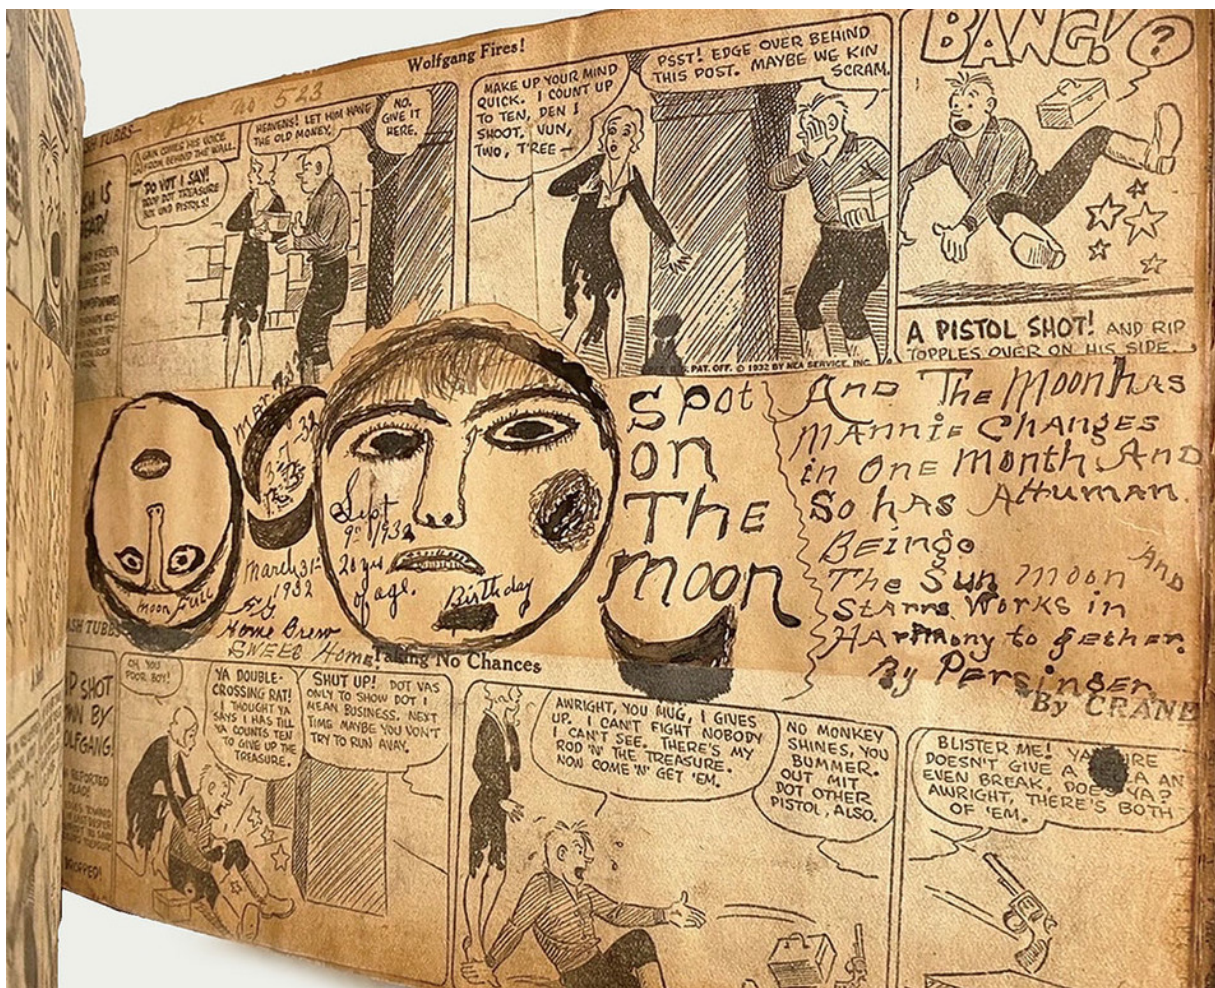 Wolfgang Fires!
No 523
SH TUBBS—
A GAIN COMES HIS VOICE
FROM BEHIND THE WALL.
DO VOT I SAY!
DROP DOT TREASURE
BOX UND PISTOLS!
HEAVENS! LET HIM HAVE
THE OLD MONEY,
NO.
GIVE IT
HERE.
MAKE UP YOUR MIND
QUICK. I COUNT UP
TO TEN, DEN I
SHOOT. VUN,
TWO, T'REE—
PSST! EDGE OVER BEHIND
THIS POST. MAYBE WE KIN
SCRAM.
BANG!
?
A PISTOL SHOT! AND RIP
TOPPLES OVER ON HIS SIDE.
PAT. OFF. © 1932 BY NEA SERVICE, INC.
moon Full
March 31st
1932
Home Brew
SWEED Home!
Sept
9th 1932
20 yrs
of age.
Birthday
Spot
on
The
moon
And The Moon has
Mannie Changes
in One Month And
So has A Human.
Beings
And
The Sun Moon
Starrs Works in
Harmony to gether.
By Persinger
SH TUBBS
Taking No Chances
By CRANE
IP SHOT
WN BY
OLFGANG!
OH, YOU
POOR BOY!
YA DOUBLE-
CROSSING RAT!
I THOUGHT YA
SAYS I HAS TILL
YA COUNTS TEN
TO GIVE UP THE
TREASURE.
SHUT UP! DOT VAS
ONLY TO SHOW DOT I
MEAN BUSINESS. NEXT
TIME MAYBE YOU VON'T
TRY TO RUN AVAY.
AWRIGHT, YOU MUG, I GIVES
UP. I CAN'T FIGHT NOBODY
I CAN'T SEE. THERE'S MY
ROD 'N' THE TREASURE.
NOW COME 'N' GET 'EM.
NO MONKEY
SHINES, YOU
BUMMER.
OUT MIT
DOT OTHER
PISTOL, ALSO.
BLISTER ME! YA
DOESN'T GIVE A AN
EVEN BREAK, DOES YA?
AWRIGHT, THERE'S BOTH
OF 'EM.